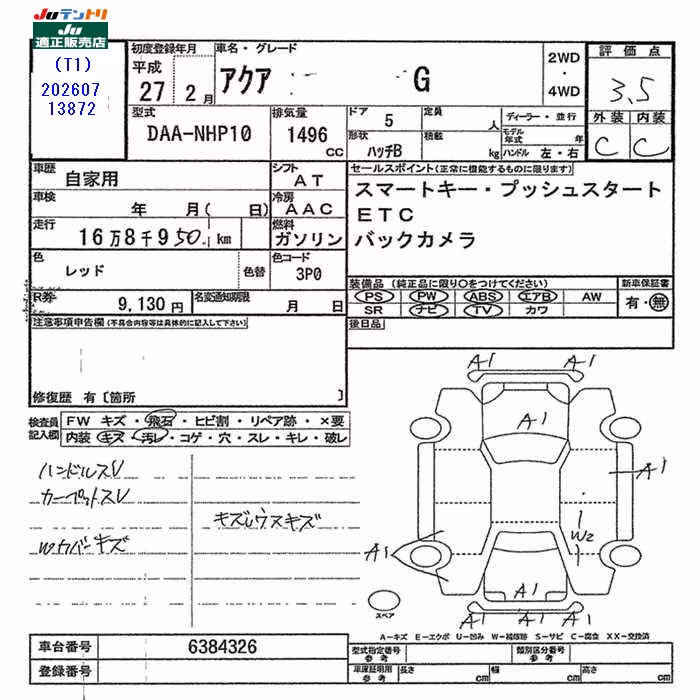 Juテントリ
Ju
適正販売店
(T1)
202607
13872
初度登録年月
平成
27 2月
車名・グレード
アクア G
2WD
・
4WD
評価点
3.5
外装 内装
C C
型式
DAA-NHP10
排気量
1496
CC
ドア
5
定員
人
形状
ハッチB
積載
kg
ディーラー・並行
モデル
年式 年
ハンドル 左・右
車歴
自家用
シフト
AT
車検
年 月( 日)
冷房
AAC
走行
16万8千950 km
燃料
ガソリン
色
レッド
色替
色コード
3P0
R券
9,130円
名変通知期限
月 日
セールスポイント(正常に機能するものに限ります)
スマートキー・プッシュスタート
ETC
バックカメラ
装備品(純正品に限り○をつけてください)
PS PW ABS エアB AW
SR ナビ TV カワ
新車保証書
有・無
後日品
注意事項申告欄(不具合内容等は具体的に記入して下さい)
修復歴 有〔箇所 〕
検査員
記入欄
FW キズ・飛石・ヒビ割・リペア跡・×要
内装 キズ・汚レ・コゲ・穴・スレ・キレ・破レ
ハンドルスレ
カーペットスレ
キズレウスキズ
Wカバーキズ
A1 A1
A1
A1
W2
A1
A1
A1 A1
スペア
A-キズ E-エクボ U-凹み W-補修跡 S-サビ C-腐食 XX-交換済
車台番号
6384326
登録番号
型式指定番号
参考
類別区分番号
参考
車庫証明用
参考
長さ cm
幅 cm
高さ cm